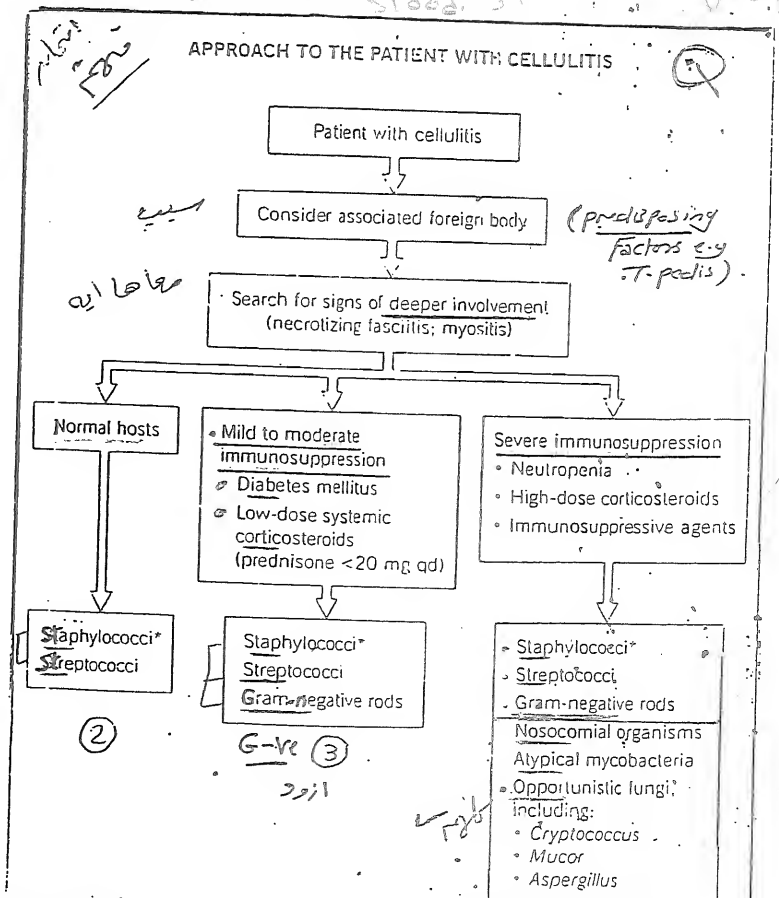 APPROACH TO THE PATIENT WITH CELLULITIS
Patient with cellulitis
Consider associated foreign body
(predisposing
factors e.g
T. pedis).
معاها ايه
Search for signs of deeper involvement
(necrotizing fasciitis; myositis)
Normal hosts
• Mild to moderate
immunosuppression
• Diabetes mellitus
• Low-dose systemic
corticosteroids
(prednisone <20 mg qd)
Severe immunosuppression
• Neutropenia
• High-dose corticosteroids
• Immunosuppressive agents
Staphylococci*
Streptococci
2
Staphylococci*
Streptococci
Gram-negative rods
G-ve 3
ازود
• Staphylococci*
• Streptococci
• Gram-negative rods
Nosocomial organisms
Atypical mycobacteria
• Opportunistic fungi,
including:
• Cryptococcus
• Mucor
• Aspergillus